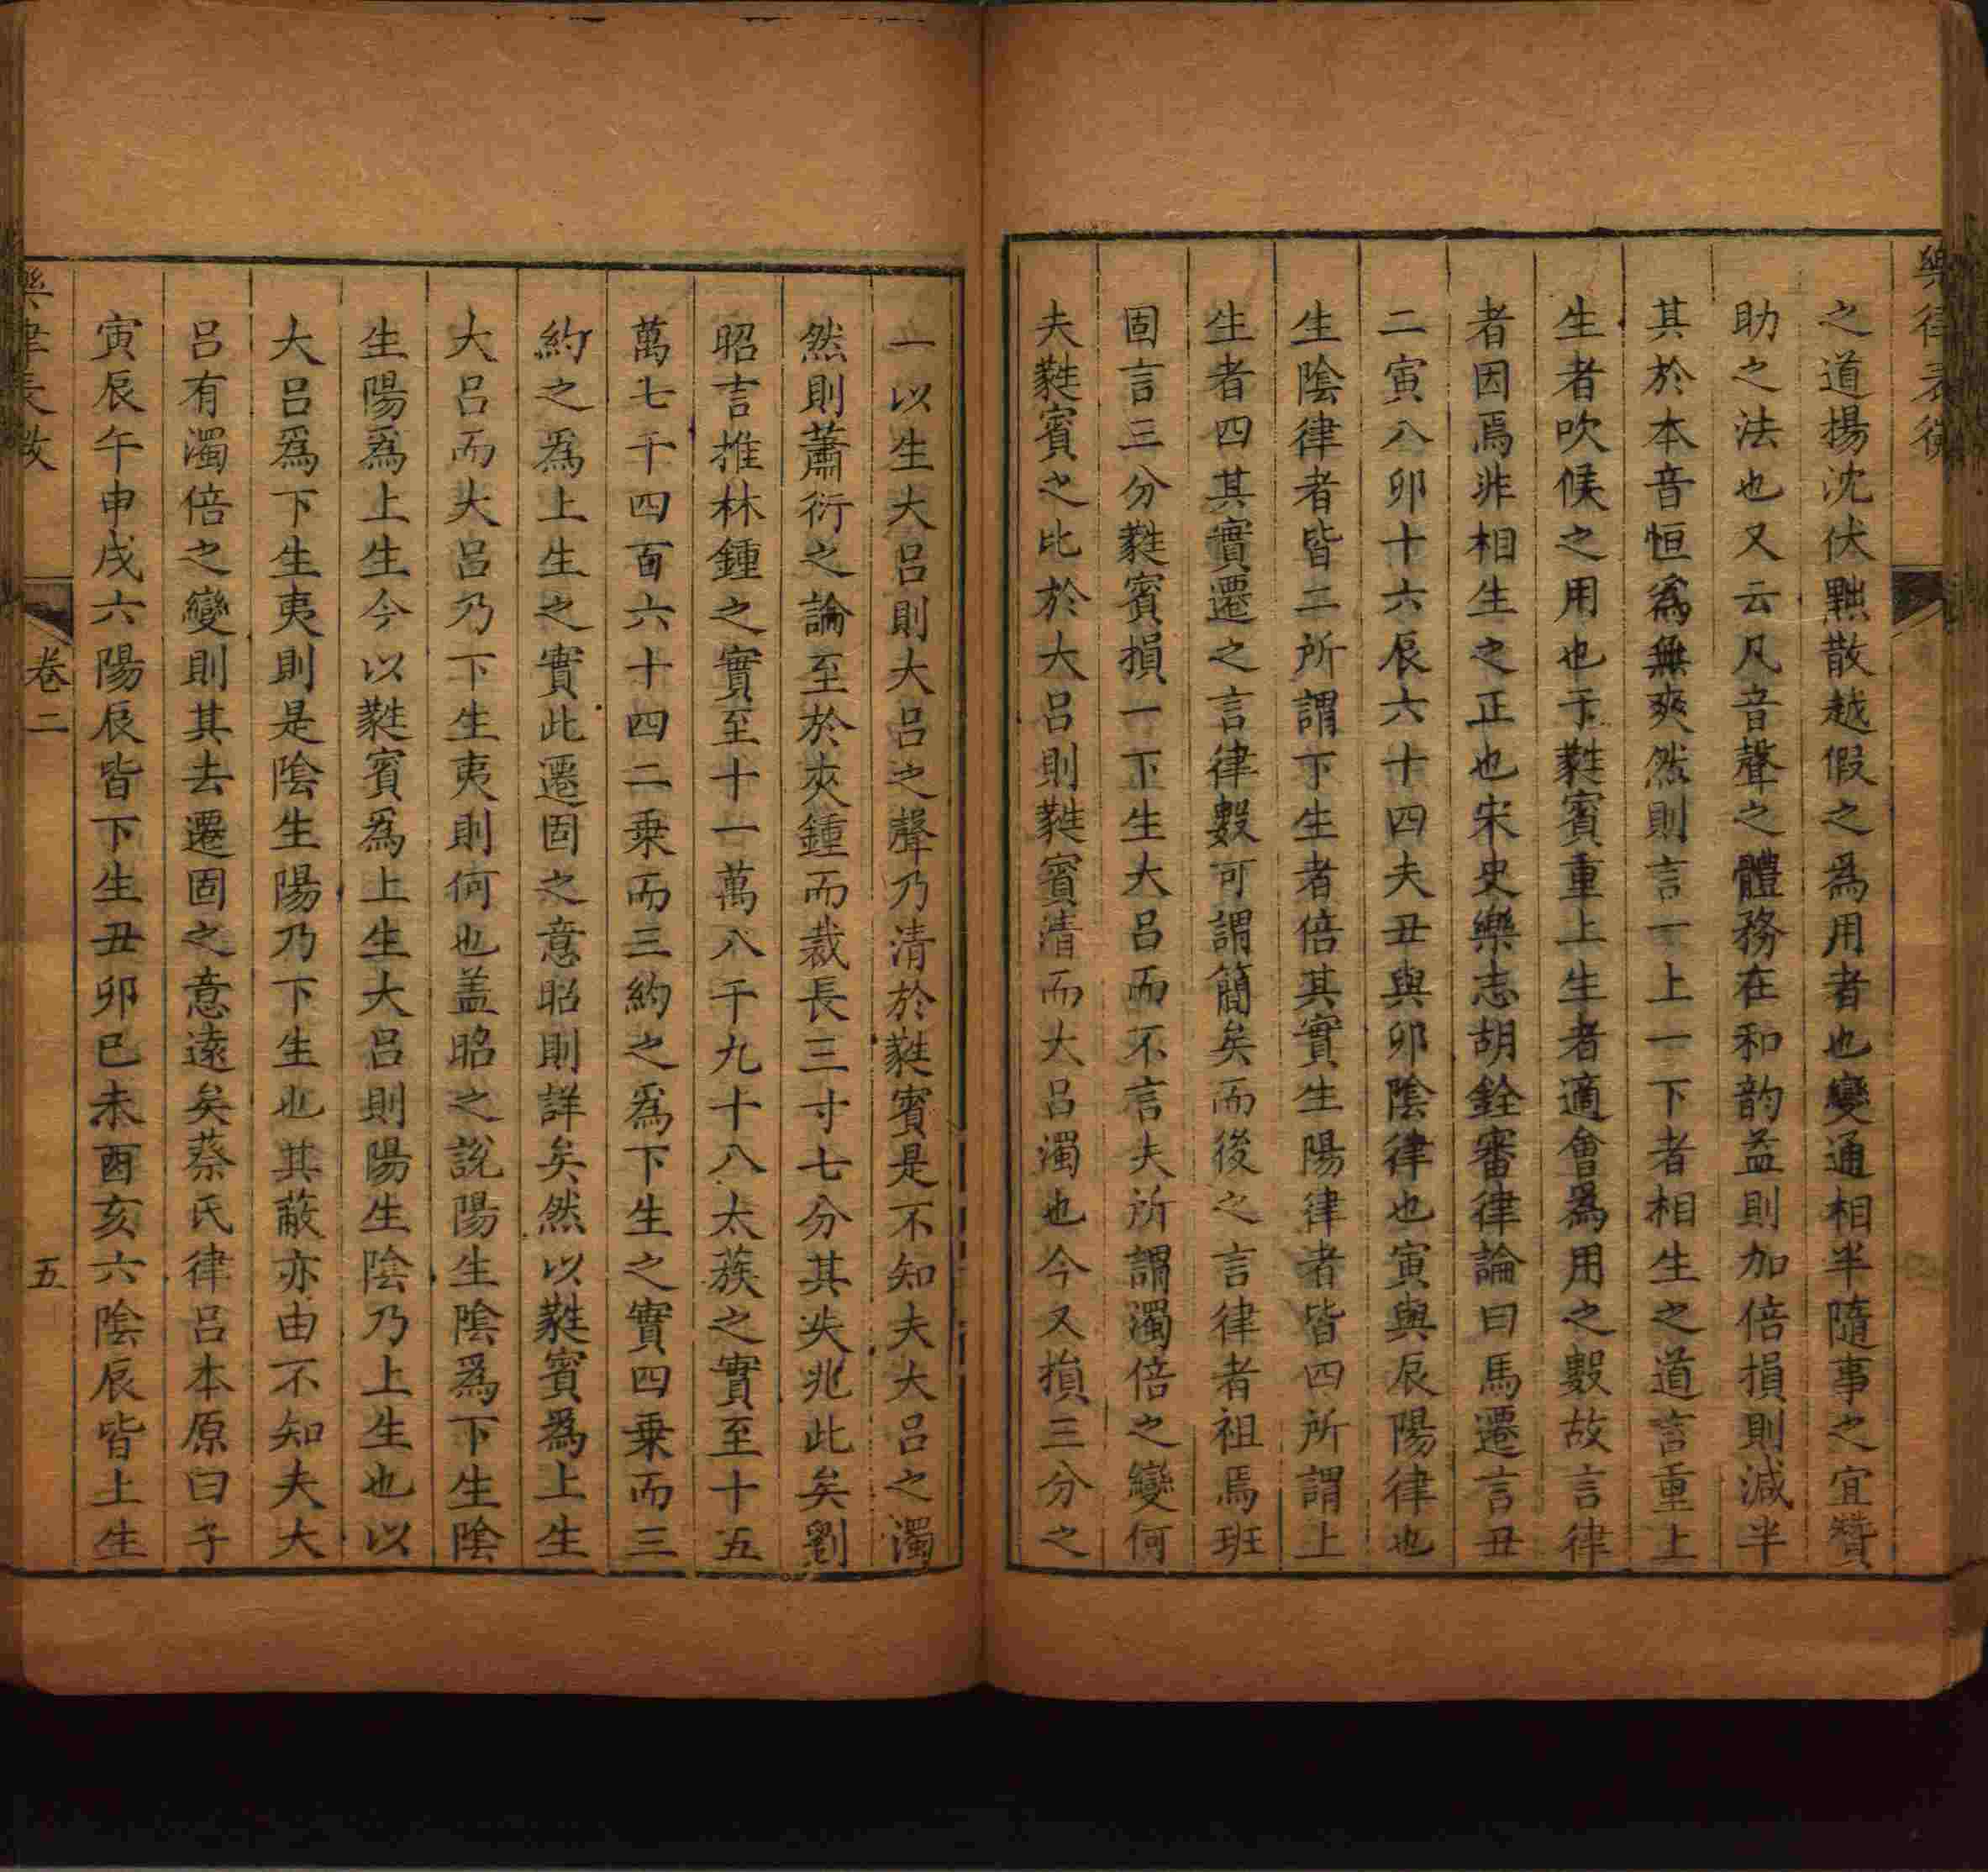 之道揚沈伏黜散越假之爲用者也變通相半隨事之宜贊
助之法也又云凡音聲之體務在和韵益則加倍損則減半
其於本音恒爲無爽然則言一上一下者相生之道言重上
生者吹候之用也于蕤賓重上生者適會爲用之數故言律
者因焉非相生之正也宋史樂志胡銓審律論曰馬遷言丑
二寅八卯十六辰六十四夫丑與卯陰律也寅與辰陽律也
生陰律者皆二所謂下生者倍其實生陽律者皆四所謂上
生者四其實遷之言律數可謂簡矣而後之言律者祖焉班
固言三分蕤賓損一下生大呂而不言夫所謂濁倍之變何
夫蕤賓之比於大呂則蕤賓清而大呂濁也今又損三分之
一以生大呂則大呂之聲乃清於蕤賓是不知夫大呂之濁
然則蕭衍之論至於夾鍾而裁長三寸七分其失兆此矣劉
昭言推林鍾之實至十一萬八千九十八太蔟之實至十五
萬七千四百六十四二乘而三約之爲下生之實四乘而三
約之爲上生之實此遷固之意昭則詳矣然以蕤賓爲上生
大呂而大呂乃下生夷則何也盖昭之說陽生陰爲下生陰
生陽爲上生今以蕤賓爲上生大呂則陽生陰乃上生也以
大呂爲下生夷則是陰生陽乃下生也其蔽亦由不知夫大
呂有濁倍之變則其去遷固之意遠矣蔡氏律呂本原曰子
寅辰午申戌六陽辰皆下生丑卯巳未酉亥六陰辰皆上生
卷二
五